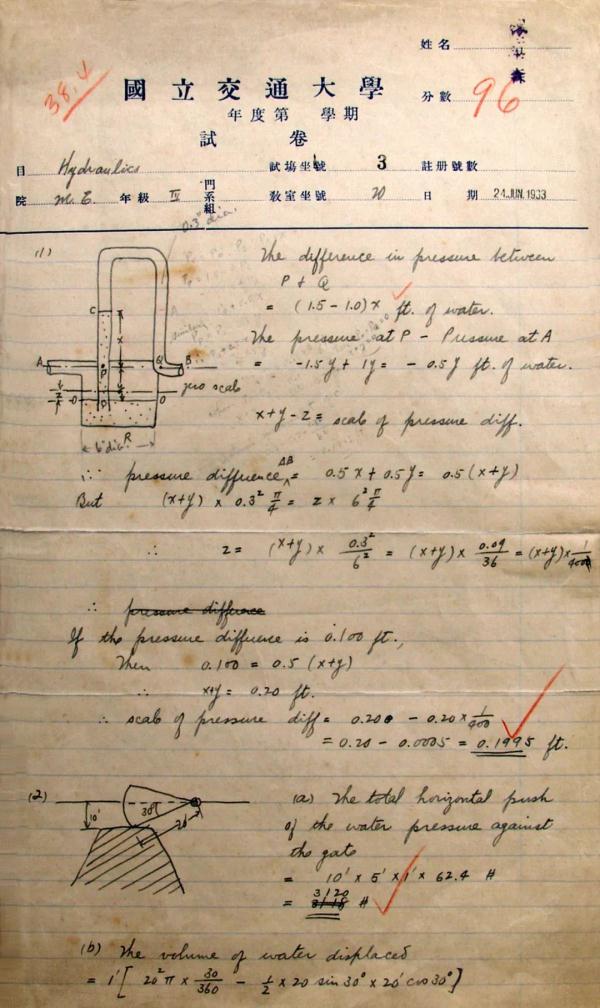 姓名
38.4
國立交通大學
分數 96
年度第 學期
試 卷
目 Hydraulics 試場坐號 3 註册號數
院 M.E. 年級 IV 門系組 教室坐號 20 日期 24.JUN.1933
0.3" dia.
(1)
The difference in pressure between
P & Q
= (1.5 - 1.0)x ft. of water.
The pressure at P - Pressure at A
= -1.5y + 1y = -0.5y ft. of water.
x+y-z = scale of pressure diff.
C
x
A P Q B
y
zero scale
z O O
D
R
6" dia.
∴ pressure difference AB = 0.5x + 0.5y = 0.5(x+y)
But (x+y) × 0.3² π/4 = z × 6² π/4
∴ z = (x+y) × 0.3²/6² = (x+y) × 0.09/36 = (x+y) × 1/400
∴ pressure difference
If the pressure difference is 0.100 ft.,
Then 0.100 = 0.5 (x+y)
∴ x+y = 0.20 ft.
∴ scale of pressure diff = 0.200 - 0.20 × 1/400
= 0.20 - 0.0005 = 0.1995 ft.
(2)
10'
30°
20'
(a) The total horizontal push
of the water pressure against
the gate
= 10' × 5' × 1' × 62.4 #
= 3120 #
(b) The volume of water displaced
= 1' [ 20² π × 30/360 - 1/2 × 20 sin 30° × 20' cos 30° ]